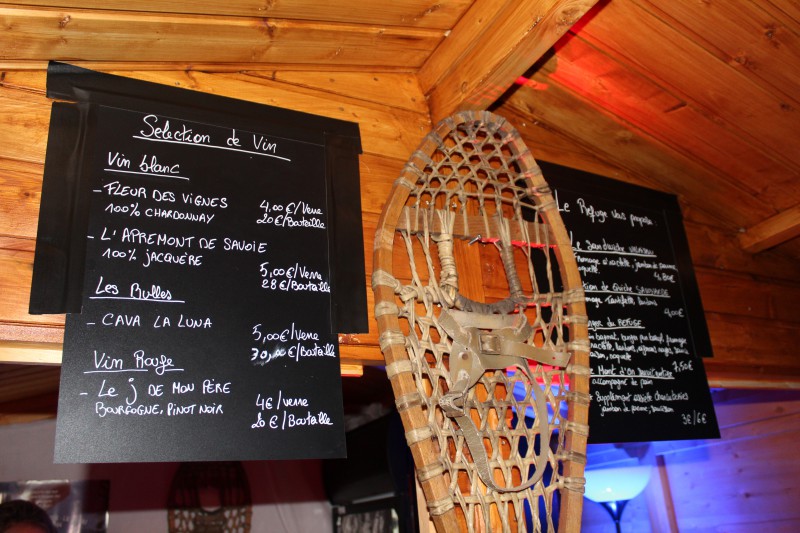 Sélection de Vin
Vin blanc
- FLEUR DES VIGNES
100% CHARDONNAY
4,00€/Verre
20€/Bouteille
- L'APREMONT DE SAVOIE
100% JACQUÈRE
5,00€/Verre
28€/Bouteille
Les Bulles
- CAVA LA LUNA
5,00€/Verre
30,00€/Bouteille
Vin Rouge
- Le J DE MON PÈRE
BOURGOGNE, PINOT NOIR
4€/Verre
20€/Bouteille
Le Refuge vous propose
Le Sandwiche
Fromage à raclette, jambon de
de Quiche SAVOYARDE
Tartiflette, lardons
du REFUGE
Le Mont d'Or
accompagné de pain
7,50€
Supplément assiette charcuteries
3€/6€